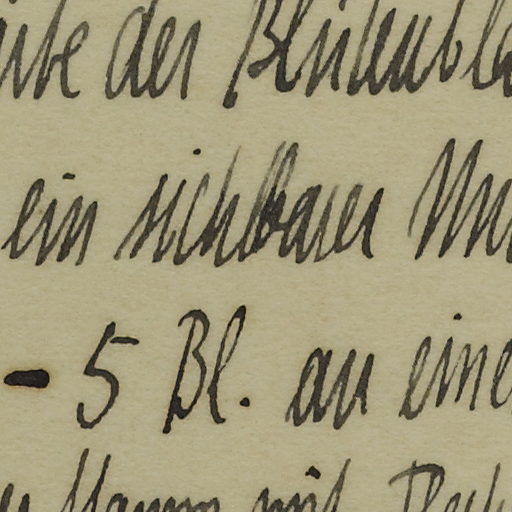 der Blütenbl
ein sichtbarer
- 5 Bl. an eine
mit